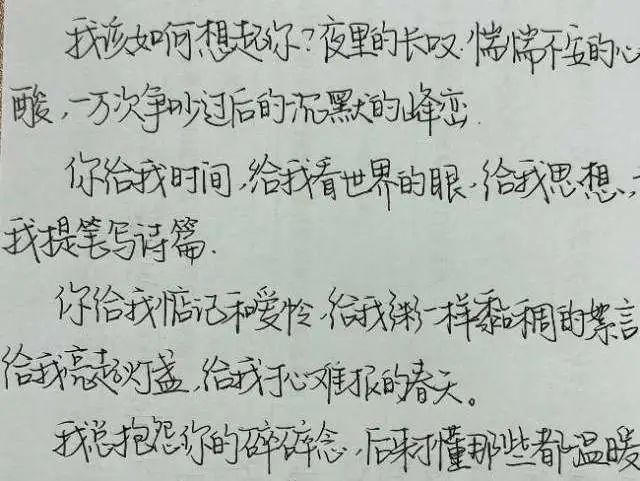 我该如何想起你？夜里的长叹.惴惴不安的心
酸，一万次争吵过后的沉默的峰峦.
你给我时间，给我看世界的眼，给我思想、
我提笔写诗篇.
你给我惦记和爱怜，给我粥一样黏稠的絮言
给我亮起灯盏，给我于心难报的春天。
我总抱怨你的碎碎念，后来才懂那些都温暖